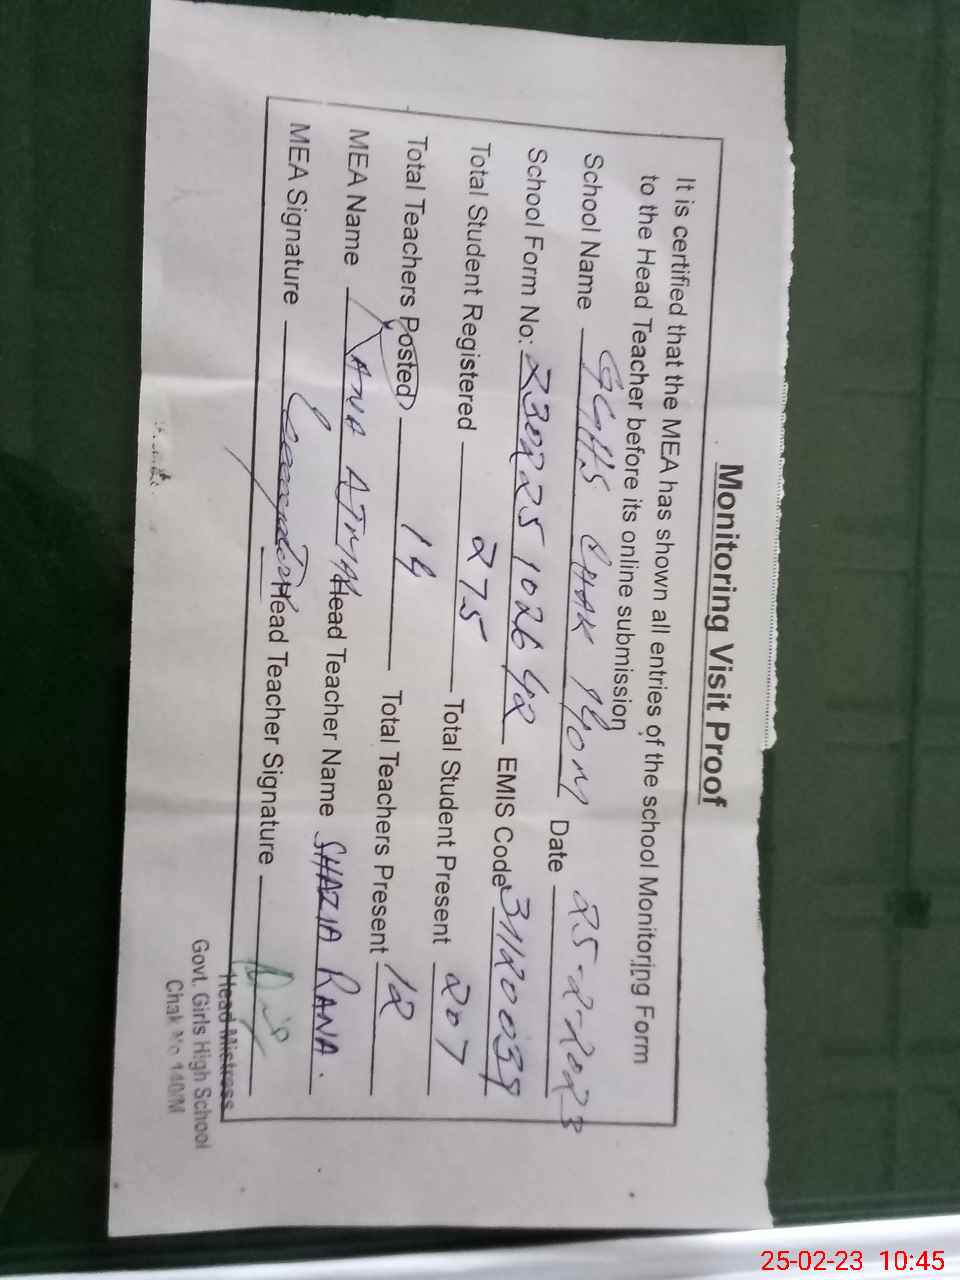 Monitoring Visit Proof
It is certified that the MEA has shown all entries of the school Monitoring Form
to the Head Teacher before its online submission
School Name GGHS CHAK 140M Date 25-2-2023
School Form No: 230225102642 EMIS Code 31120039
Total Student Registered 275 Total Student Present 207
Total Teachers Posted 14 Total Teachers Present 12
MEA Name RANA Head Teacher Name SHAZIA RANA.
MEA Signature Head Teacher Signature
Head Mistress
Govt. Girls High School
Chak No 140/M
25-02-23 10:45